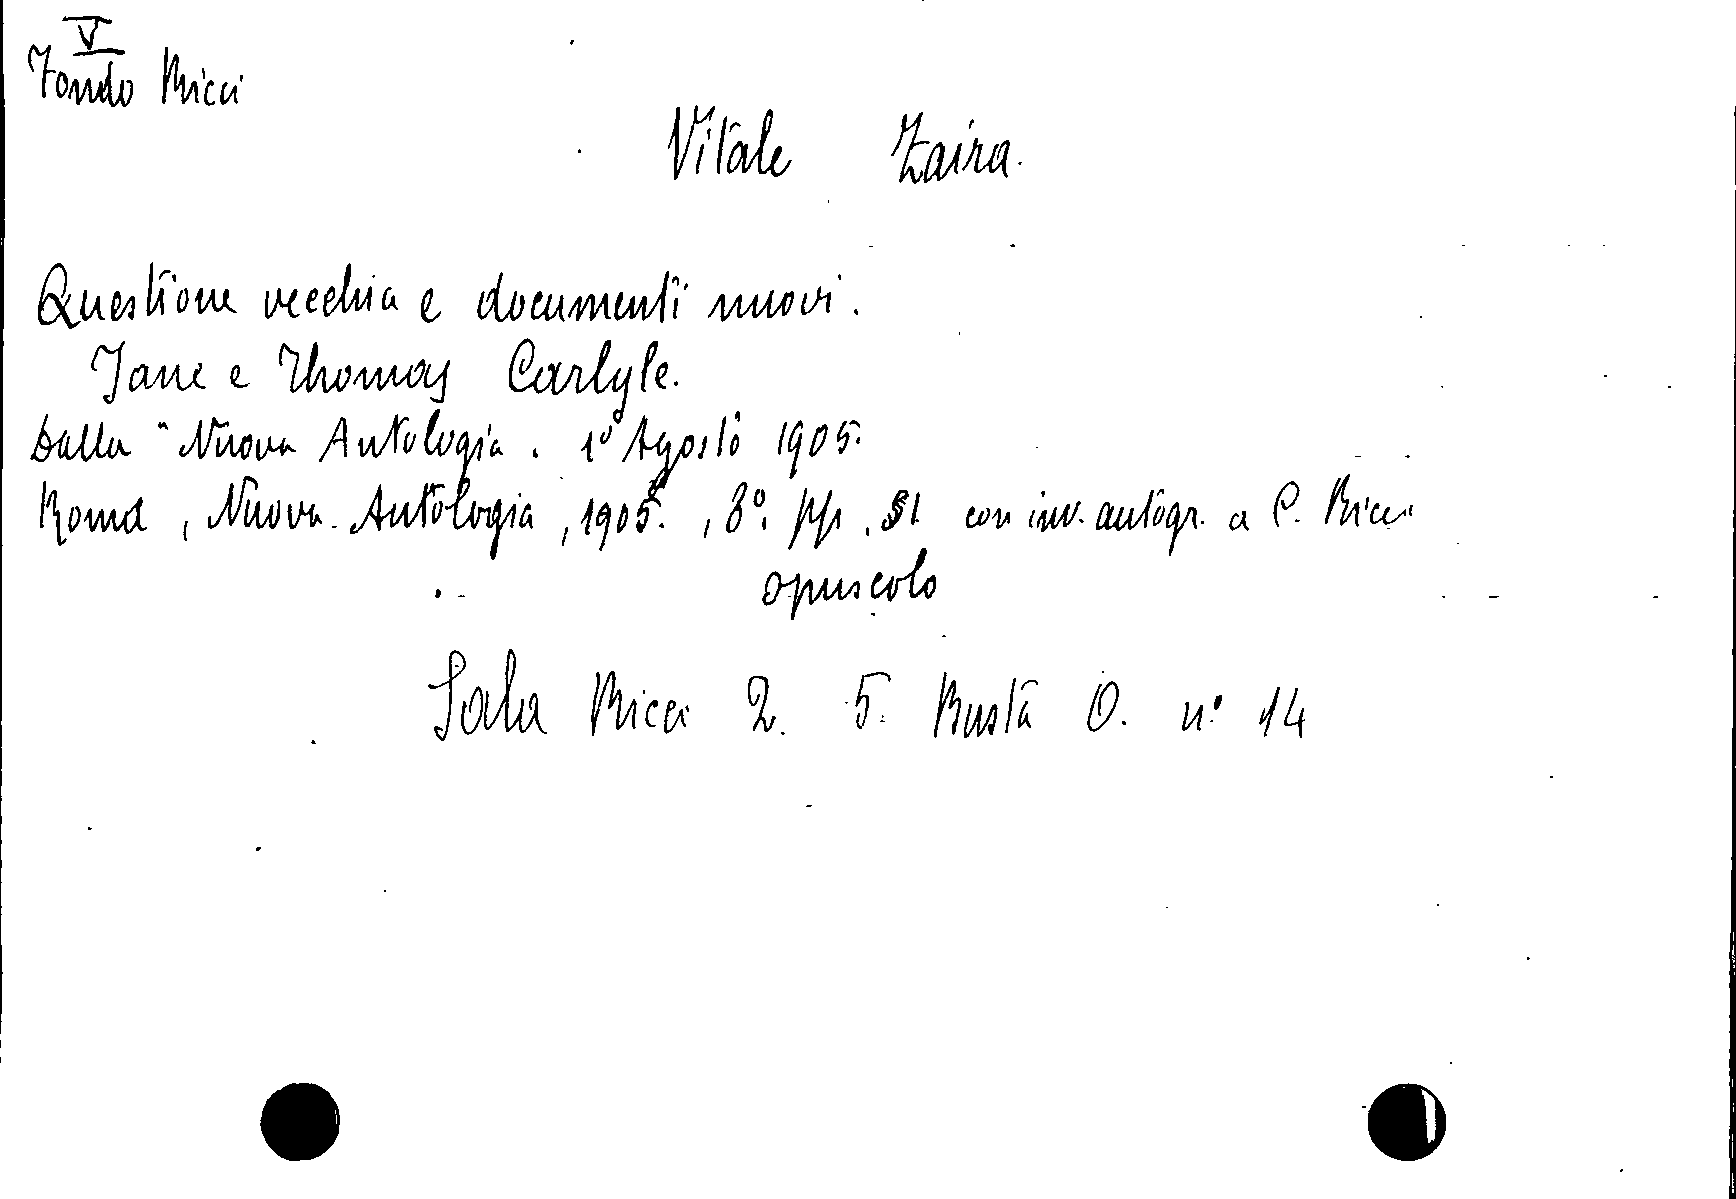 V
Fondo Ricci
Vitale Zaira.
Questione vecchia e documenti nuovi.
Jane e Thomas Carlyle.
Dalla " Nuova Antologia. 1° Agosto 1905.
Roma, Nuova Antologia, 1905., 8°. pp. con inv. autogr. a C. Ricci
opuscolo
Sala Ricci 2. 5. Busta O. n° 14